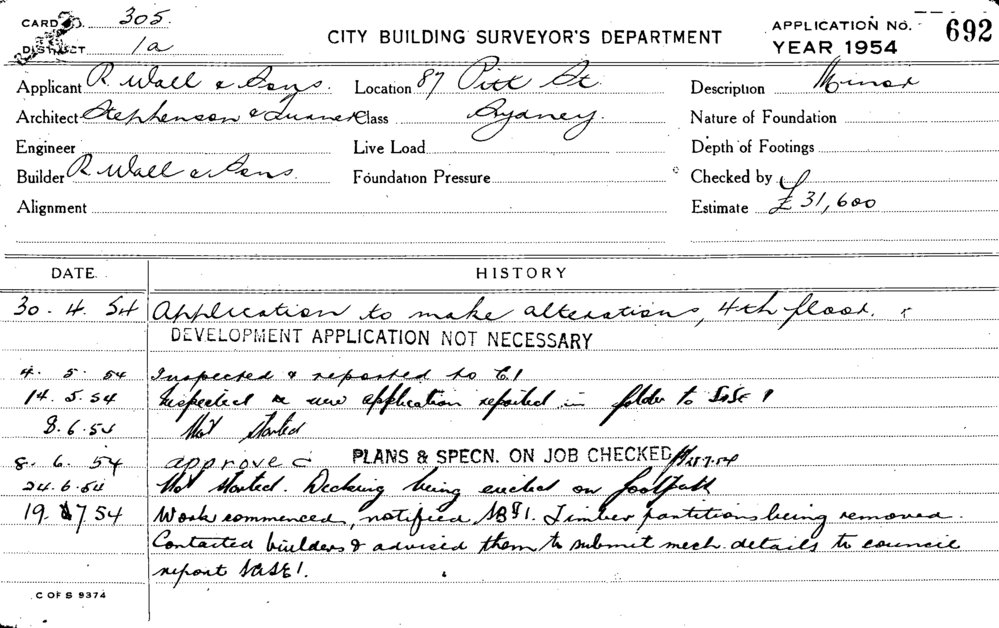 CARD 305.
DISTRICT 1a
CITY BUILDING SURVEYOR'S DEPARTMENT
APPLICATION No. 692
YEAR 1954
Applicant R Wall & Sons. Location 87 Pitt St. Description Minor
Architect Stephenson & Turner Class Sydney. Nature of Foundation
Engineer Live Load Depth of Footings
Builder R Wall & Sons. Foundation Pressure Checked by
Alignment Estimate £31,600
DATE. HISTORY
30. 4. 54 Application to make alterations, 4th floor.
DEVELOPMENT APPLICATION NOT NECESSARY
4. 5. 54 Inspected & reported to C.I
14. 5. 54 Inspected new application reported in folder to
8. 6. 54 Not started
8. 6. 54 approved PLANS & SPECN. ON JOB CHECKED 28.7.54
24. 6. 54 Not started. Decking being erected on footpath
19. 7 54 Work commenced, notified Timber partitions being removed.
Contacted builders & advised them to submit mech. details to council
report
C OF S 9374